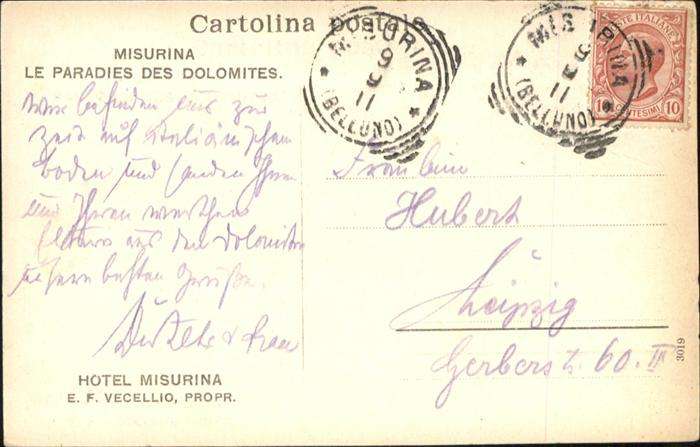 Cartolina postale
MISURINA
LE PARADIES DES DOLOMITES.
Wir befinden uns zur
Zeit auf italiänischem
Boden und senden Ihnen
und Ihren werthen
Eltern aus den Dolomiten
unsere besten Grüße.
& Frau
HOTEL MISURINA
E. F. VECELLIO, PROPR.
MISURINA
9
11
(BELLUNO)
MISURINA
9
11
(BELLUNO)
POSTE ITALIANE
10 CENTESIMI 10
Fräulein
Hubert
Leipzig
Gerberstr. 60. III
3019